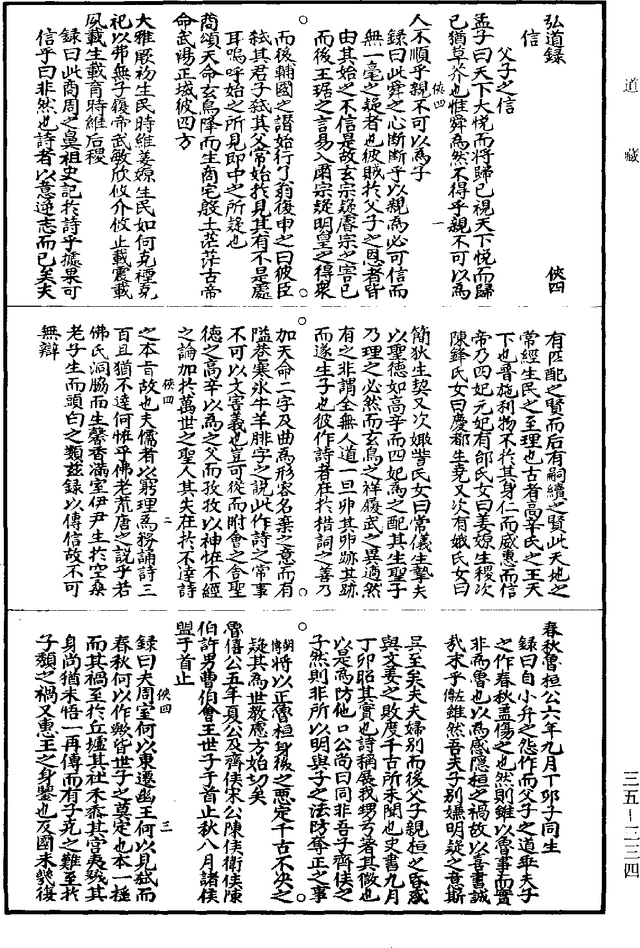 道藏
弘道録
俠四
信
父子之信
孟子曰天下大悦而將歸已視天下悦而歸
已猶草芥也惟舜為然不得乎親不可以為
人不順乎親不可以為子
俠四
一
録曰此舜之心斷斷乎以親為必可信而
無一毫之疑者也彼賊於父子之恩者皆
由其始之不信是故玄宗疑睿宗之害已
而後王琚之言易入肅宗疑明皇之得衆
而後輔國之譖始行了翁復申之曰彼臣
弑其君子弑其父常始於見其有不是處
耳嗚呼始之所見即中之所疑也
商頌天命玄鳥降而生商宅殷土茫茫古帝
命武湯正域彼四方
大雅厥初生民時維姜嫄生民如何克禋克
祀以弗無子履帝武敏歆攸介攸止載震載
夙載生載育時維后稷
録曰此商周之鼻祖史記於詩乎據果可
信乎曰非然也詩者以意逆志而已矣夫
有匹配之賢而后有嗣續之賢此天地之
常經生民之至理也古者高辛氏之王天
下也普施利物不於其身仁而威惠而信
帝乃四妃元妃有邰氏女曰姜嫄生稷次
陳鋒氏女曰慶都生堯又次有娥氏女曰
簡狄生契又次娵訾氏女曰常儀生摯夫
以聖德如高辛而四妃為之配其生聖子
乃理之必然而玄鳥之祥履武之異適然
有之非謂全無人道一旦卵其卵跡其跡
而遂生子也彼作詩者在於措詞之善乃
加天命二字及曲為形容名棄之意而有
隘巷寒氷牛羊腓字之說此作詩之常事
不可以文害義也豈可從而附會之舍聖
德之高辛以為之父而孜孜以神怪不經
之論加於萬世之聖人其失在於不達詩
之本旨故也夫儒者以窮理為務誦詩三
俠四
二
百且猶不達何恠乎佛老荒唐之說乎若
佛氏洞脇而生馨香滿室伊尹生於空桑
老子生而頭白之類兹録以傳信故不可
無辯
春秋魯桓公六年九月丁卯子同生
録曰自小弁之怨作而父子之道乖夫子
之作春秋蓋傷之也然則雖以魯事而實
非為魯也以為感隱桓之禍故以喜書誠
哉末乎佐雖然吾夫子別嫌明疑之意斯
其至矣夫夫婦別而後父子親桓之昏惑
與文姜之敗度千古所未聞也史書九月
丁卯昭其實也詩稱展我甥兮著其微也
以是為防他日公尚曰同非吾子齊侯之
子然則非所以明與子之法防奪正之事
胡傳將以正魯桓身後之惡定千古不决之
疑其為世教慮方始切矣
魯僖公五年夏公及齊侯宋公陳侯衛侯陳
伯許男曹伯會王世子于首止秋八月諸侯
盟于首止
録曰夫周室何以東遷幽王何以見弑而
俠四
三
春秋何以作歟皆世子之莫定也本一極
而其禍至於丘墟其社禾黍其宮夷䟽其
身尚猶未悟一再傳而有子克之難至於
子頽之禍又惠王之身鑒也及國未幾復
三五－二三四